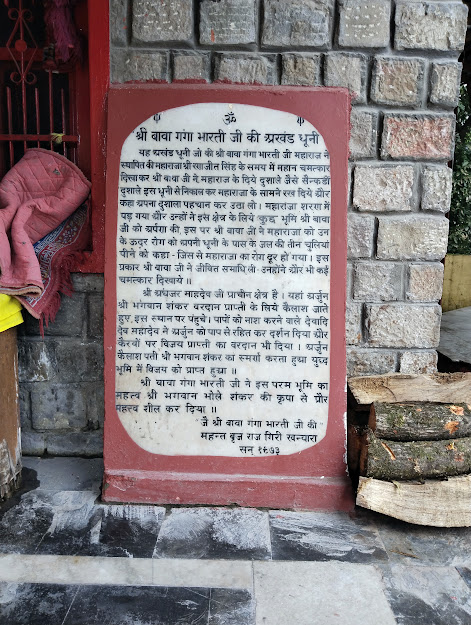 ॐ
श्री बावा गंगा भारती जी की अखंड धूनी
यह अखंड धूनी जी की श्री बावा गंगा भारती जी महाराज ने
स्थापित की महाराजा श्री रणजीत सिंह के समय में महान चमत्कार
दिखा कर श्री बाबा जी में, महाराज के दिये दुशाले जैसे सैन्कडों
दुशाले इस धूनी से निकाल कर महाराजा के सामने रख दिये और
कहा अपना दुशाला पहचान कर उठा लो। महाराजा शरण में
पड़ गया और उन्होंने इस क्षेत्र के लिये कुछ भूमि श्री बावा
जी को अर्पण की, इस पर श्री बावा जी ने महाराजा को उन
के ऊदर रोग को अपनी धूनी के पास के जल की तीन चूलियां
पीने को कहा - जिस से महाराजा का रोग दूर हो गया। इस
प्रकार श्री बावा जी ने जीवित समाधि ली उनहोंने और भी कई
चमत्कार दिखाये ॥
श्री अंधजर माहदेव जी प्राचीन क्षेत्र है। यहां अर्जुन
श्री भगवान शंकर वरदान प्राप्ती के लिये कैलाश जाते
हुए, इस स्थान पर पंहुचे। पापों को नाश करने वाले देवादि
देव महादेव ने अर्जुन को पाप से रहित कर दर्शन दिया और
कैरवों पर विजय प्राप्ती का वरदान भी दिया। अर्जुन
कैलाश पती श्री भगवान शंकर का समर्ण करता हुआ युद्ध
भूमि में विजय को प्राप्त हुआ ॥
श्री बावा गंगा भारती जी ने इस परम भूमि का
महत्व श्री भगवान भोले शंकर की कृपा से और
महत्व शील कर दिया ॥
"जै श्री बावा गंगा भारती जी की"
महन्त बृज राज गिरी खन्यारा
सन् १९७३